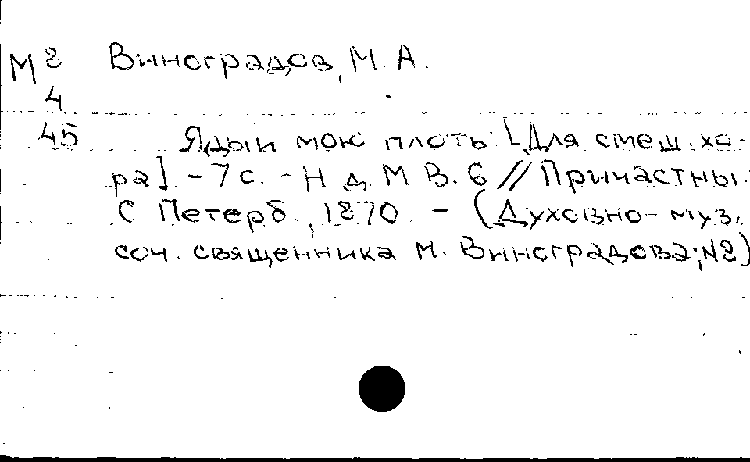 М 2 Виноградов, М. А.
4
45 Ядый мою плоть [Для смеш. хо-
ра] - 7 с. - Н д М В. 6 // Причастны.
С Петерб., 1870. - (Духовно-муз.
соч. священника М. Виноградова; N2)